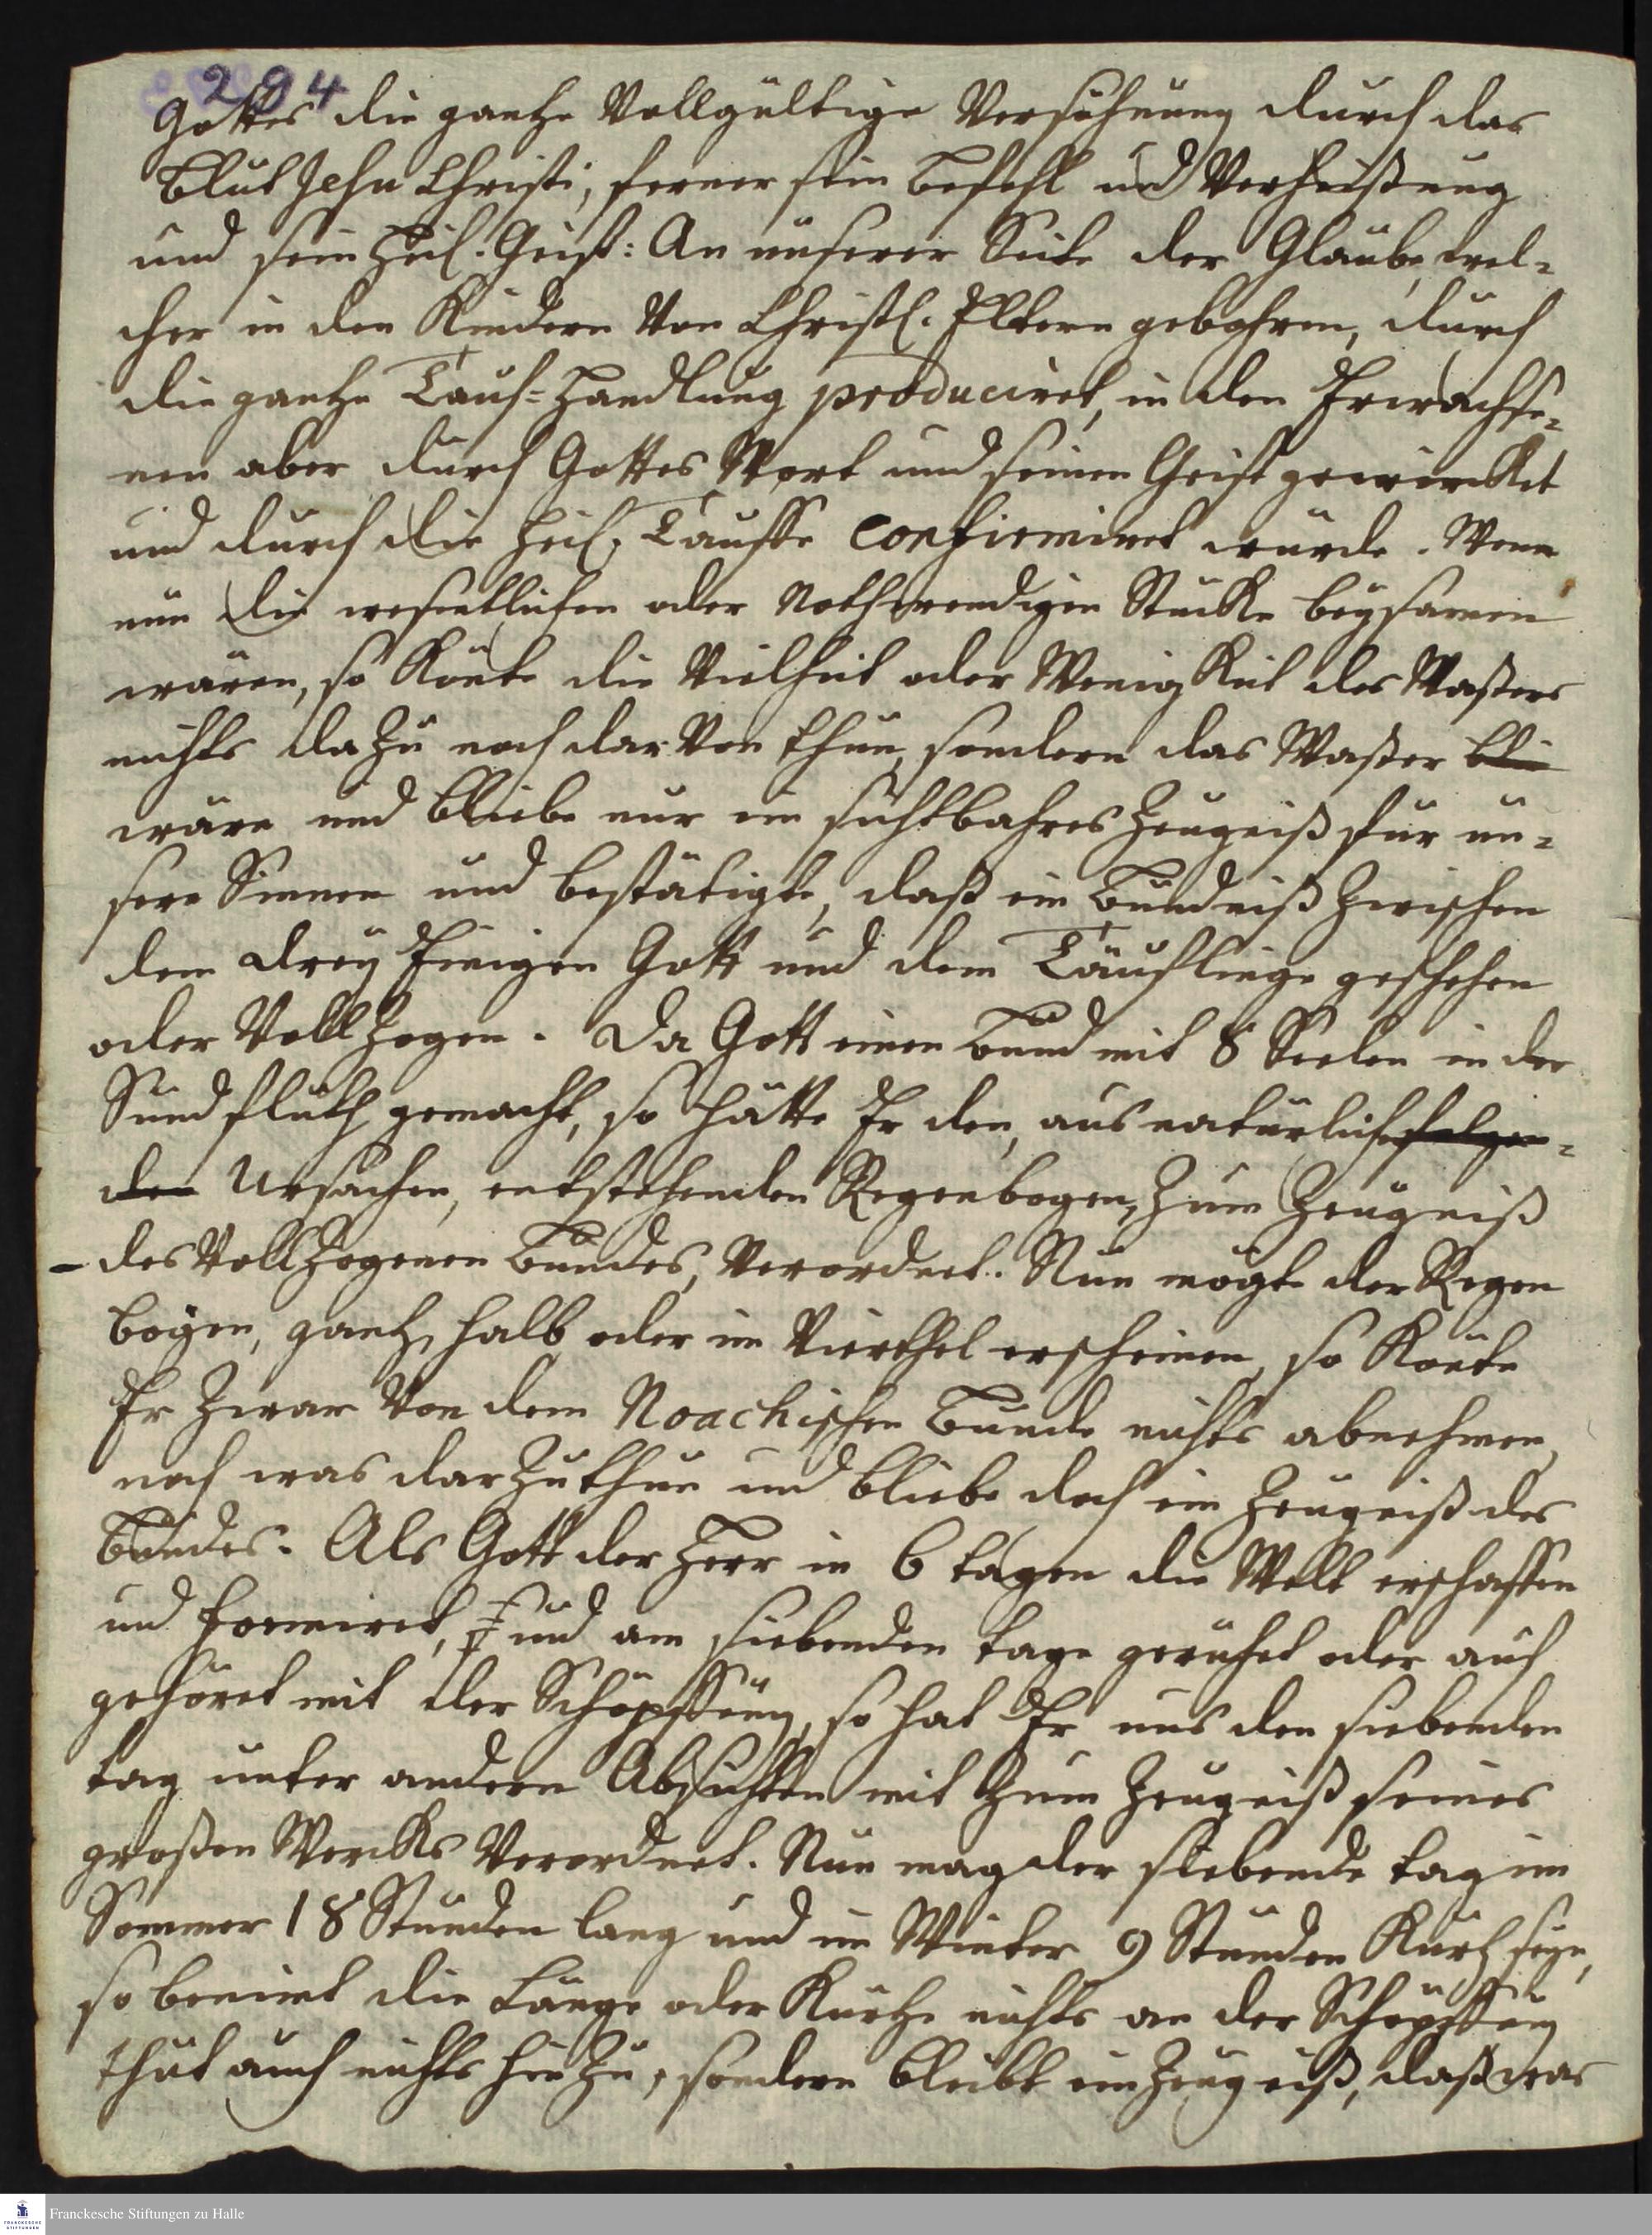 284
Gottes die gantze Vollgültige Versöhnung durch das
Blut Jesu Christi, ferner sein Befehl und Verheißung
und sein Heil. Geist: An unserer Seite der Glaube, wel-
cher in den Kindern von Christl. Eltern gebohren, durch
die gantze Tauf-Handlung produciret, in den Erwachse-
nen aber durch Gottes Wort und seinen Geist gewircket
und durch die Heil. Tauffe confirmiret würde. Wenn
nun die wesentlichen oder Nothwendigen Stücke beysamen
wären, so könte die Vielheit oder Wenigkeit des Waßers
nichts dazu noch darvon thun, sondern das Waßer blie
wäre und bliebe nur ein sichtbahres Zeugniß für un-
sere Sinnen und bestätigte, daß ein Bündniß zwischen
dem drey Einigen Gott und dem Täuflinge geschehen
oder Vollzogen. Da Gott einen Bund mit 8 Seelen in der
Sündfluth gemacht, so hätte Er den, aus natürlich folgen-
den Ursachen, entstehenden Regenbogen, zum Zeugniß
des Vollzogenen Bundes, Verordnet. Nun mögte der Regen
bogen, gantz, halb oder im Vierthel erscheinen, so könte
Er zwar von dem Noachischen Bunde nichts abnehmen,
noch was darzuthun und bliebe doch ein Zeugniß des
Bundes. Als Gott der Herr in 6 tagen die Welt erschaffen
und formiret, und am siebenden tage geruhet oder auf
gehöret mit der Schöpffung, so hat Er uns den siebenden
tag unter andern Absichten mit zum Zeugniß seines
großen Wercks Verordnet. Nun mag der siebende tag im
Sommer 18 Stunden lang und im Winter 9 Stunden kurtz seyn,
so benimt die Länge oder Kürtze nichts an der Schöpffung
thut auch nichts hinzu, sondern bleibt ein Zeugniß, daß was
Franckesche Stiftungen zu Halle
FRANCKESCHE
STIFTUNGEN